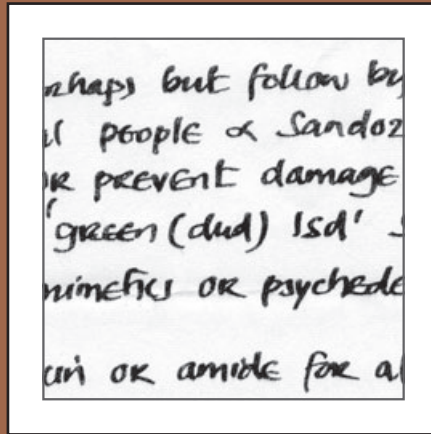 rhaps but follow by
al people & Sandoz
or prevent damage
'green (dud) lsd'
mimetics or psychede
or amide for al